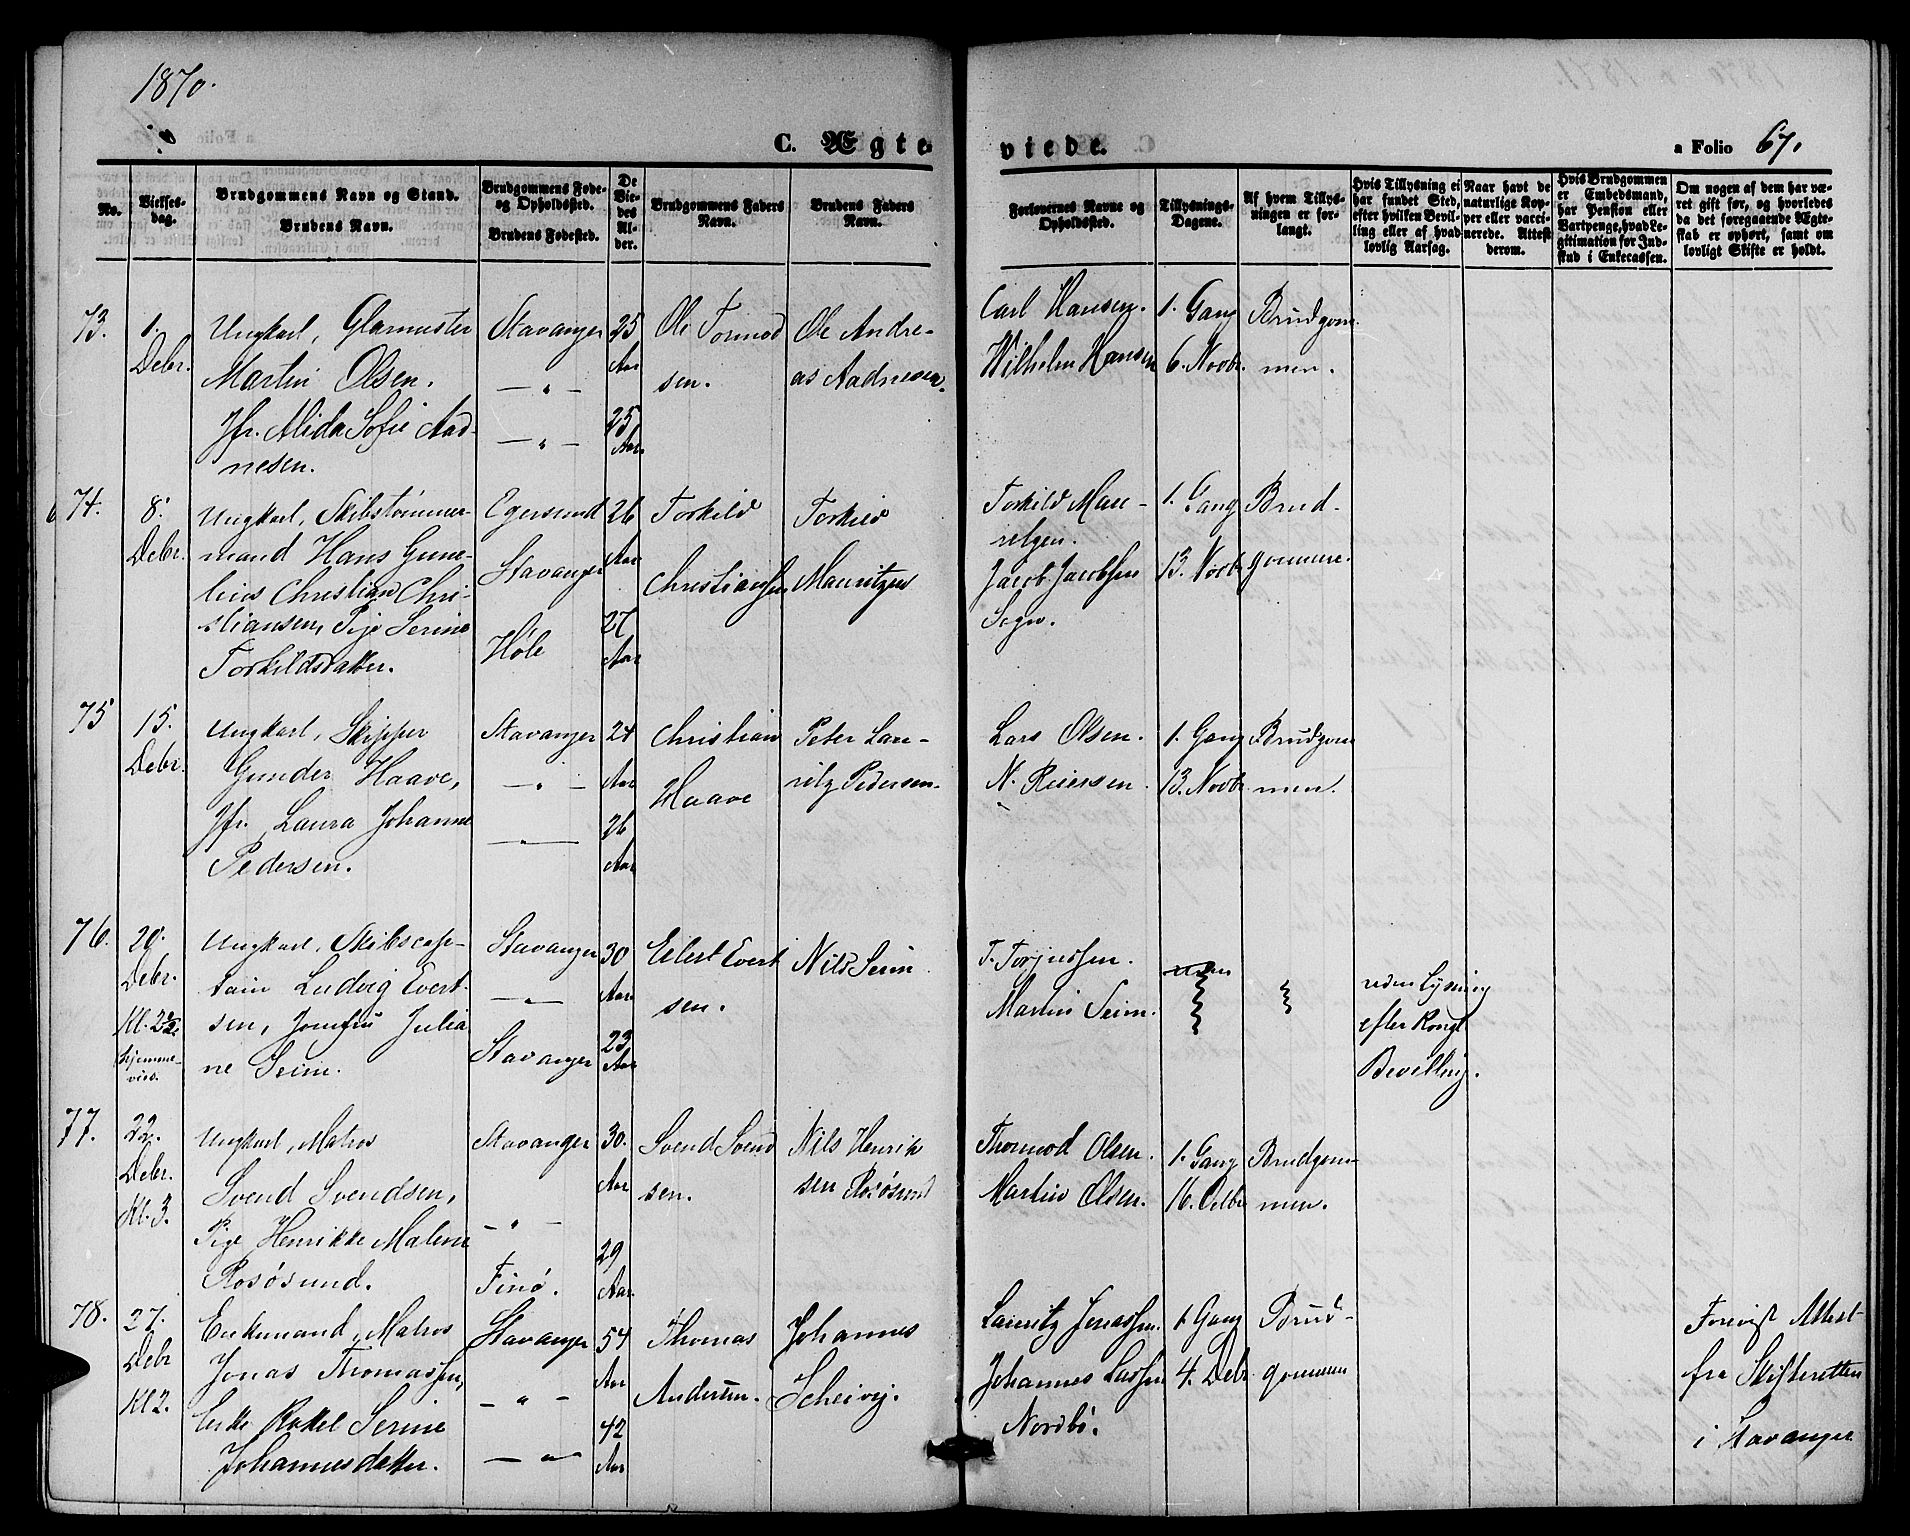 1870.
C. Ægte
viede.
a Folio 67.
No.
Vielses-
dag.
Brudgommens Navn og Stand.
Brudens Navn.
Brudgommens Føde-
og Opholdssted.
Brudens Fødested.
De
Vie-
des
Al-
der.
Brudgommens Faders
Navn.
Brudens Faders
Navn.
Forlovernes Navne og
Opholdssted.
Tillysnings-
Dagene.
Af hvem Tillys-
ningen er for-
langt.
Hvis Tillysning ei
har fundet Sted,
efter hvilken Bevil-
ling eller af hvad
lovlig Aarsag.
Naar havt de
naturlige Kop-
per eller vacci-
nerede. Attest
derom.
Hvis Brudgommen
er Embedsmand,
har Pension eller
Vartpenge, hvad Le-
gitimation for Ind-
skud i Enkecassen.
Om nogen af dem har væ-
ret gift før, og hvorledes
da det foregaaende Ægte-
skab er ophørt, samt om
lovligt Skifte er holdt.
73.
1.
Debr.
Ungkarl, Glarmester
Martin Olsen.
Jfr. Alida Sofie Aad-
nesen.
Stavanger
— " —
— " —
25
Aar
25
Aar.
Ole Tormod
sen.
Ole Andre-
as Aadnesen.
Carl Hansen.
Wilhelm Hansen
1. Gang
6. Novbr.
Brudgom
men.
74.
8.
Debr.
Ungkarl, Skibstømmer-
mand Hans Gune-
lius Christian Chri-
stiansen, Pige Serine
Torkildsdatter.
Egersund
Stavanger
Høle
26
Aar
27
Aar
Torkild
Christiansen
Torkild
Mauritzen
Torkild Mau-
ritzen.
Jacob Jacobsen
Sogn.
1. Gang
13. Novbr
Brud-
gommen.
75
15.
Debr.
Ungkarl, Skipper
Gunder Haave,
Jfr. Laura Johanne
Pedersen.
Stavanger
— " —
— " —
24
Aar
26
Aar
Christian
Haave
Peter Lau-
ritz Pedersen.
Lars Olsen.
N. Reiersen.
1. Gang
13. Novbr.
Brudgom
men.
76.
20.
Debr.
Kl. 2 1/2
hjemme-
vied.
Ungkarl, Skibscap-
tain Ludvig Evert-
sen, Jomfru Julia
ne Seim.
Stavanger
— " —
Stavanger
30
Aar
23
Aar
Eilert Evert
sen.
Nils Seim
T. Torjussen.
Martin Seim.
uden
uden Lysning
efter Kongl
Bevilling.
77.
22.
Debr.
Kl. 3.
Ungkarl, Matros
Svend Svendsen,
Pige Henrikke Malene
Rosøsund.
Stavanger
— " —
Finø.
30.
Aar
29
Aar
Svend Svend
sen.
Nils Henrik
sen Rosøsund
Thormod Olsen.
Martin Olsen.
1. Gang
16. Octbr
Brudgom-
men.
78.
27.
Debr
Kl 2.
Enkemand, Matros
Jonas Thomassen,
Enke Rakel Serine
Johannesdatter.
Stavanger
— " —
— " —
54
Aar
42
Aar
Thomas
Andersen.
Johannes
Scheivig.
Lauritz Jonassen.
Johannes Lassen
Nordbö.
1. Gang
4. Debr
Brud-
gommen
Forevist Attest
fra Skifteretten
i Stavanger